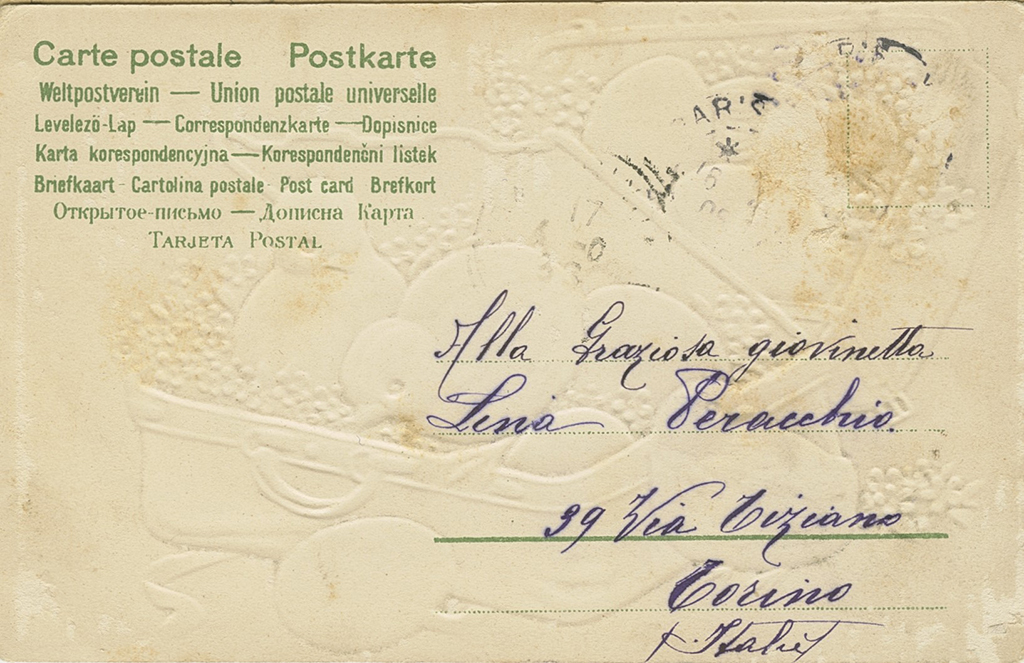 Carte postale Postkarte
Weltpostverein — Union postale universelle
Levelező-Lap — Correspondenzkarte — Dopisnice
Karta korespondencyjna — Korespondenčni listek
Briefkaart - Cartolina postale - Post card Brefkort
Открытое-письмо — Дописна Карта
Tarjeta Postal
17
Alla Graziosa giovinetta
Lina Peracchio.
39 Via Tiziano
Torino
(Italie)